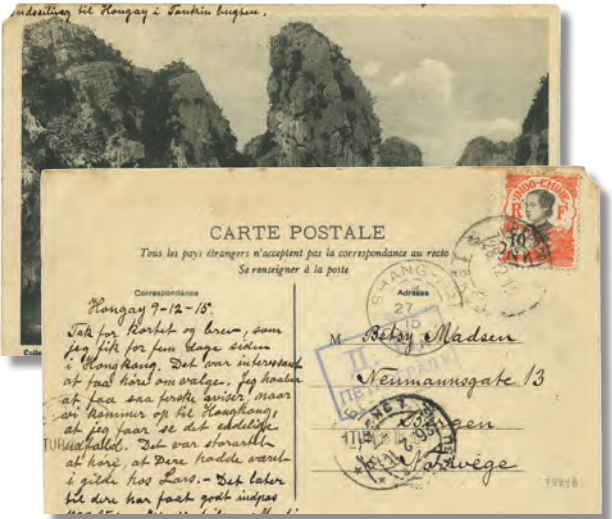 indseiling til Hongay i Tonkin bugten.
INDO-CHINE
R F
10
CARTE POSTALE
Tous les pays étrangers n'acceptent pas la correspondance au recto
Se renseigner à la poste
Correspondance
Adresse
SHANG-HAI
27
15
Hongay 9-12-15.
Tak for kortet og brev, som
jeg fik for fem dage siden
i Hongkong. Det var interessant
at faa höre om valgen. Jeg haaber
at faa saa ferske aviser, naar
vi kommer op til Hongkong,
at jeg faar se det endelige
udfald. Det var storartet
at höre, at Dere hadde været
i gilde hos Lars. - Det later
til dere har faat godt indpas
M Betsy Madsen
Neumannsgate 13
Bergen
Norwége
П.
ПЕТРОГРАДЪ
Colle